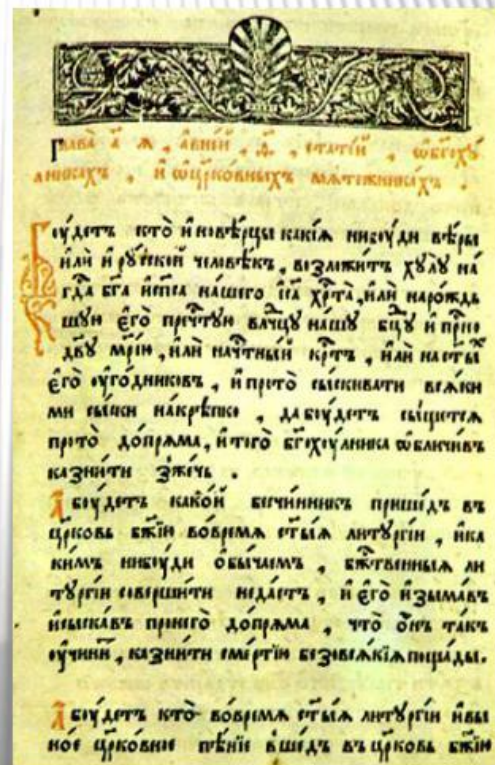 Глава̀ а҃ я , а вней , ѳ҃ , статей , ѡ бг҃оху
лникахъ , и ѡ цр҃ковныхъ мятежникахъ .
Бꙋ́детъ кто̀ иновѣ́рцы какі́я нибꙋди вѣ́ры
и҆лѝ и҆ рꙋ́ской человѣ́къ , возложи́тъ хꙋлꙋ̀ на́
гд҃а бг҃а и҆ сп҃са на́шего і҆с҃а хр҃та̀ , и҆лѝ наро́ждь
шꙋю є҆го̀ преч҃тꙋю влд҃чцꙋ на́шꙋ бц҃ꙋ и҆ пр҃но
дв҃ꙋ мр҃і́ю , и҆лѝ на ч҃тны́й кр҃тъ , и҆лѝ на ст҃ы́хъ
є҆го̀ ᲂу҆го́дниковъ , и҆ прото̀ сы́скивати вся́ки
ми сы́ски накрѣ́пко , да бꙋ́детъ сы́щется
прото̀ до́пряма , и҆ того̀ бг҃охꙋ́лника ѡ҆бличи́въ
казни́ти зже́чь .
А҆ бꙋ́детъ како́й безчи́нникъ прише́дъ въ
цр҃ковь бж҃ію во́время ст҃ы́я литꙋргі́и , и҆ ка
ки́мъ нибꙋди ѻ҆бы́чаемъ , бж҃твенныя ли
тꙋргі́и соверши́ти неда́стъ , и҆ є҆го̀ и҆зыма́въ
и҆ сыска́въ пронего̀ до́пряма , что̀ ѻ҆́нъ та́къ
ᲂу҆чини́тъ , казни́ти сме́ртію безовся́кія поща́ды .
А҆ бꙋ́детъ кто̀ во́время ст҃ы́я литꙋргі́и и҆ вы
но́е цр҃ко́вное пѣ́ніе вше́дъ въ цр҃ковь бж҃ію